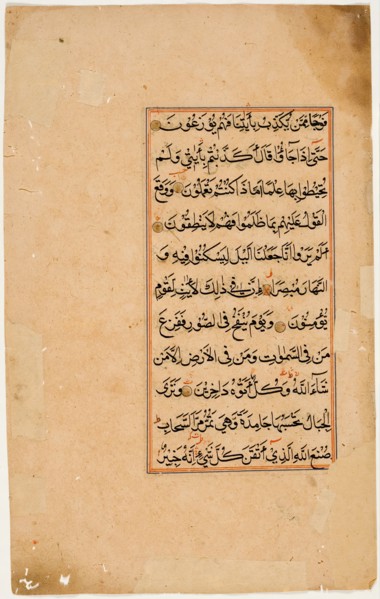 فَوْجًا مِمَّنْ يُكَذِّبُ بِآيٰتِنَا فَهُمْ يُوزَعُونَ
حَتّٰى اِذَا جَآءُوْ قَالَ اَكَذَّبْتُمْ بِاٰيٰتِىْ وَلَمْ
تُحِيْطُوْا بِهَا عِلْمًا اَمَّاذَا كُنْتُمْ تَعْمَلُوْنَ وَوَقَعَ
الْقَوْلُ عَلَيْهِمْ بِمَا ظَلَمُوْا فَهُمْ لَا يَنْطِقُوْنَ
اَلَمْ يَرَوْا اَنَّا جَعَلْنَا الَّيْلَ لِيَسْكُنُوْا فِيْهِ وَ
النَّهَارَ مُبْصِرًا اِنَّ فِىْ ذٰلِكَ لَاٰيٰتٍ لِقَوْمٍ
يُؤْمِنُوْنَ وَيَوْمَ يُنْفَخُ فِى الصُّوْرِ فَفَزِعَ
مَنْ فِى السَّمٰوَاتِ وَمَنْ فِى الْاَرْضِ اِلَّا مَنْ
شَآءَ اللّٰهُ وَكُلٌّ اَتَوْهُ دَاخِرِيْنَ وَتَرَى
الْجِبَالَ تَحْسَبُهَا جَامِدَةً وَهِىَ تَمُرُّ مَرَّ السَّحَابِ
صُنْعَ اللّٰهِ الَّذِىْ اَتْقَنَ كُلَّ شَىْءٍ اِنَّهُ خَبِيْرٌ